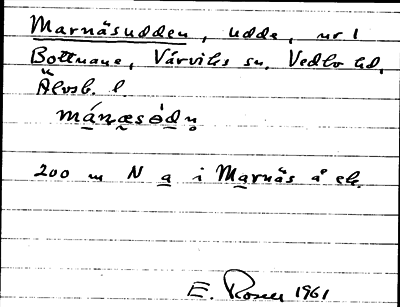 Marnäsudden, udde, nr 1
Bottnane, Värviks sn. Vedbo hd.
Älvsb. l.
mánæsódn̥
200 m N a i Marnäs å ek.
E. Rosen 1961